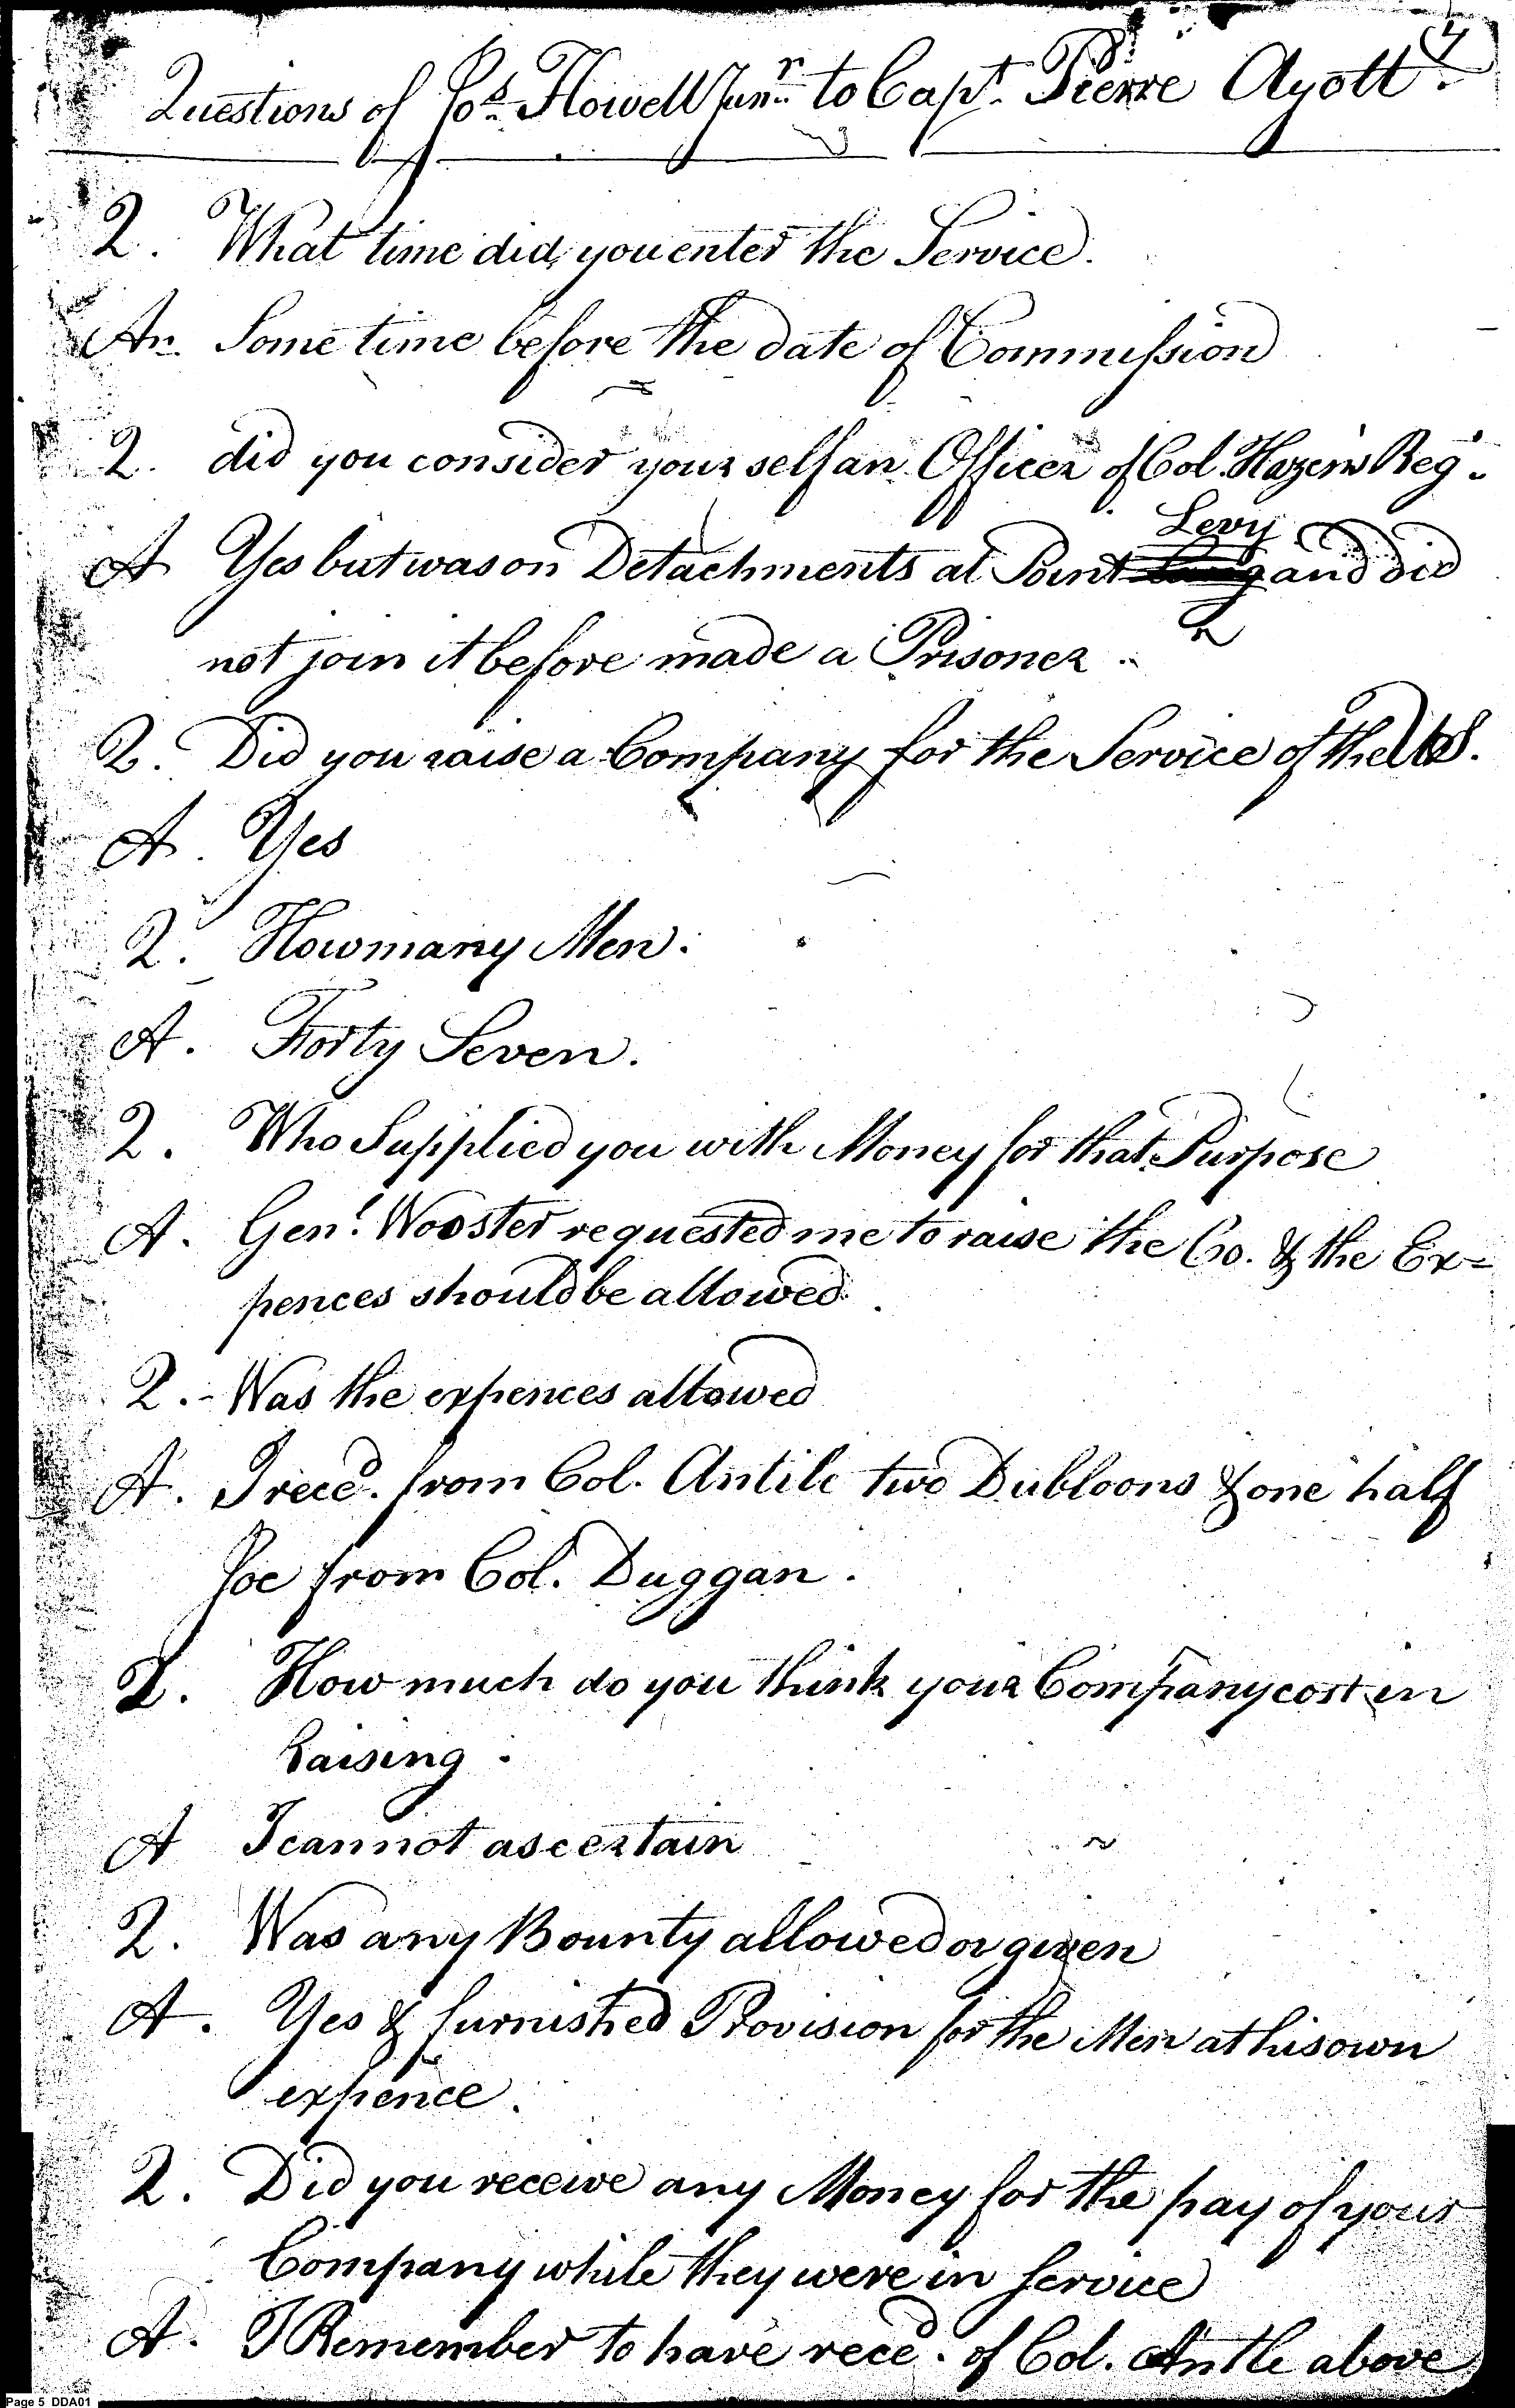 4
Questions of Jos. Howell Junr. to Capt. Pierre Ayott.
Q. What time did you enter the Service.
An. Some time before the date of Commission
Q. did you consider your self an Officer of Col. Hazens Regt.
Levy
A Yes but was on Detachments at Point and did
not join it before made a Prisoner
Q. Did you raise a Company for the Service of the US.
A. Yes
Q. How many Men.
A. Forty Seven.
Q. Who Supplied you with Money for that Purpose
A. Genl. Wooster requested me to raise the Co. & the Ex=
pences should be allowed.
Q. Was the expences allowed
A. I recd. from Col. Antile two Dubloons & one half
Joe from Col. Duggan.
Q. How much do you think your Company cost in
Raising.
A I cannot ascertain
Q. Was any Bounty allowed or given
A. Yes & furnished Provision for the Men at his own
expence.
Q. Did you receive any Money for the pay of your
Company while they were in service
A. I Remember to have recd. of Col. Antle above
Page 5 DDA01